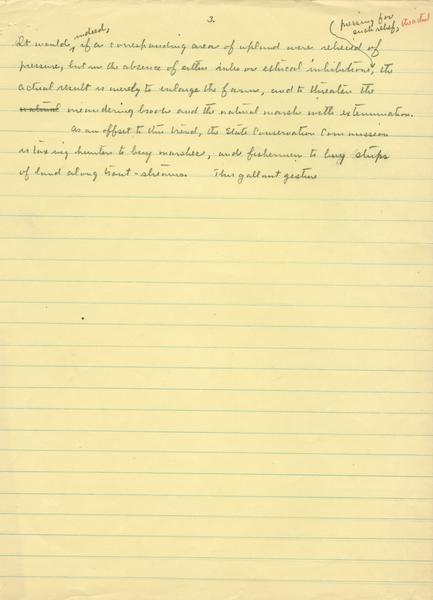 3.
indeed,
pressing for
such relief,
It would, if a corresponding area of upland were relieved of
pressure, but in the absence of either inks or ethical inhibitions, the
actual result is merely to enlarge the farm, and to threaten the
natural meandering brook and the natural marsh with extermination.
As an offset to this trend, the State Conservation Commission
is taxing hunters to buy marshes, and fishermen to buy strips
of land along trout-streams. This gallant gesture